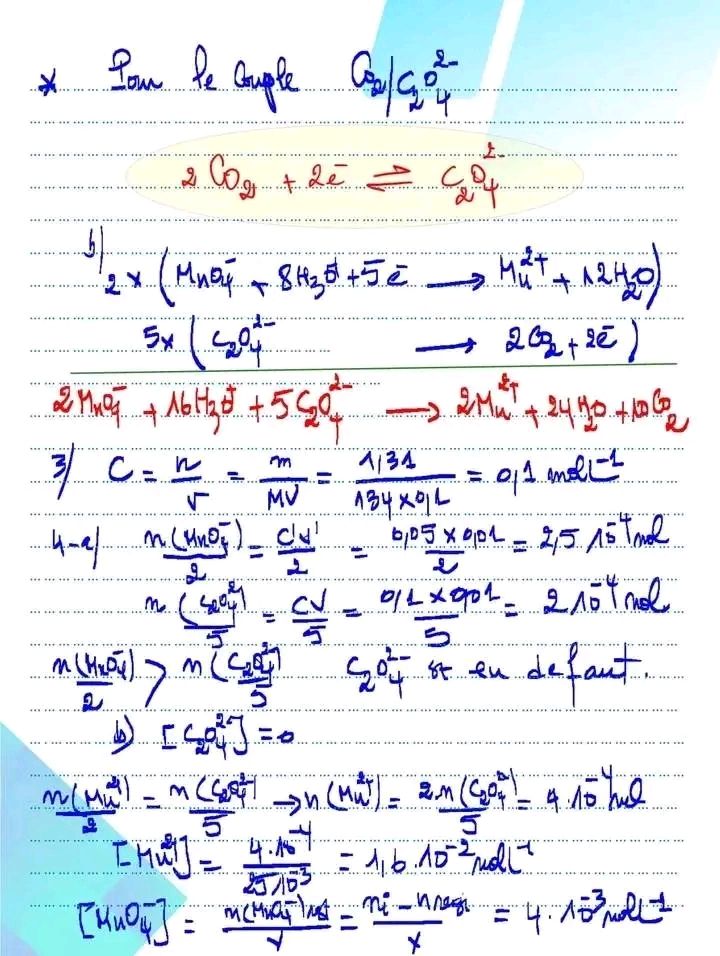 * Pour le couple CO2/C2O4^2-
2 CO2 + 2e- ⇌ C2O4^2-
b) 2 × (MnO4^- + 8H3O^+ + 5e- → Mn^2+ + 12H2O)
5 × (C2O4^2- → 2CO2 + 2e-)
2MnO4^- + 16H3O^+ + 5C2O4^2- → 2Mn^2+ + 24H2O + 10CO2
3) C = n/v = m/MV = 1,31/134×0,1 = 0,1 mol L^-1
4-a) n(MnO4^-)/2 = C'V'/2 = 0,05×0,01/2 = 2,5 10^-4 mol
n(C2O4^2-)/5 = CV/5 = 0,1×0,01/5 = 2 10^-4 mol
n(MnO4^-)/2 > n(C2O4^2-)/5 C2O4^2- est en defaut.
b) [C2O4^2-] = 0
n(Mn^2+)/2 = n(C2O4^2-)/5 → n(Mn^2+) = 2n(C2O4^2-)/5 = 4.10^-4 mol
[Mn^2+] = 4.10^-4/25 10^-3 = 1,6.10^-2 mol L^-1
[MnO4^-] = n(MnO4^-)/v = ni - n/v = 4.10^-3 mol L^-1